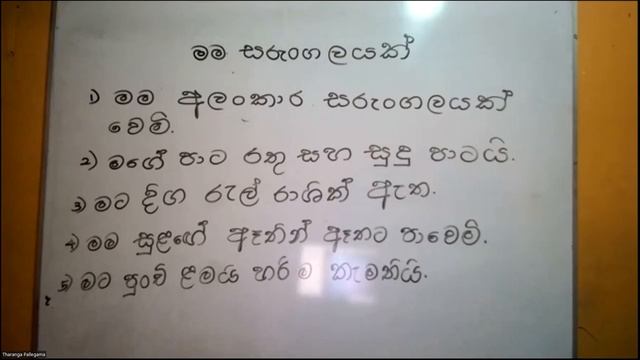 මම සරුංගලයක්
1) මම අලංකාර සරුංගලයක්
වෙමි.
2) මගේ පාට රතු සහ සුදු පාටයි.
3) මට දිග රැල් රාශික් ඇත.
4) මම සුළඟේ ඈතින් ඈතට පාවෙමි.
5) මට පුංචි ළමයි හරිම කැමතියි.
Tharanga Pallegama